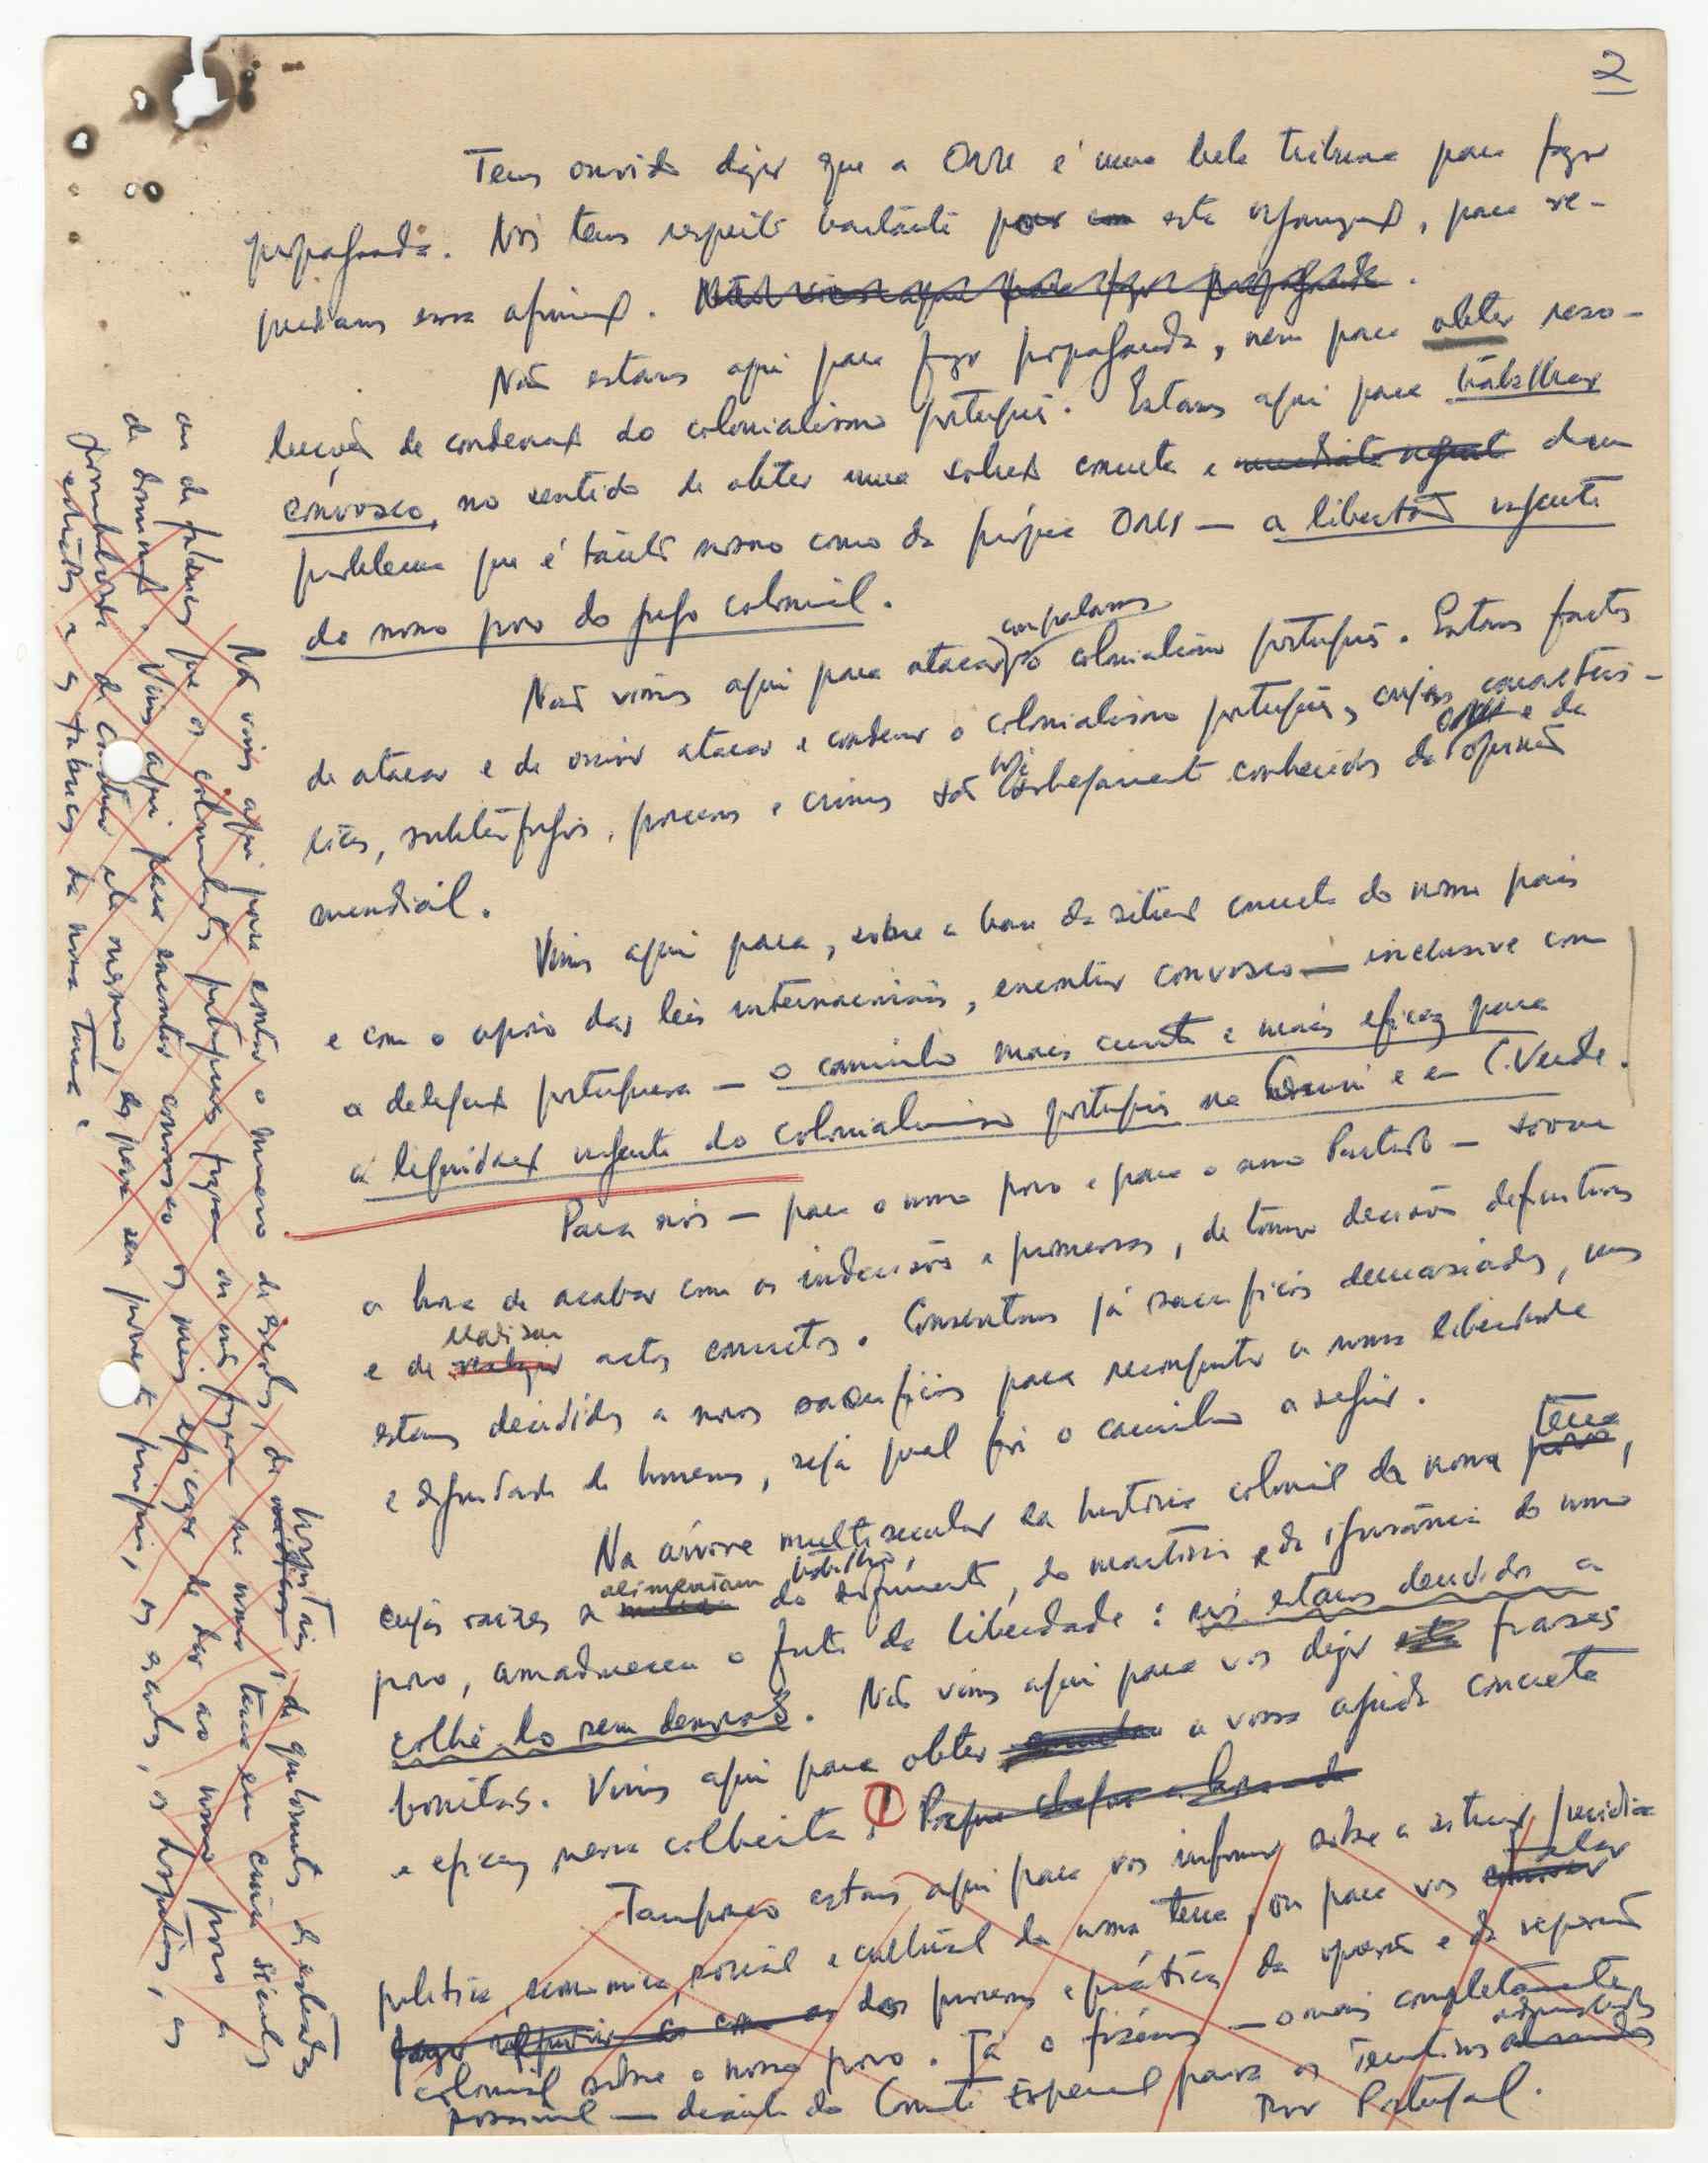 2
Temos ouvido dizer que a ONU é uma bela tribuna para fazer
propaganda. Nós temos respeito bastante por esta organização, para re-
pudiarmos essa afirmação. Não viemos aqui para fazer propaganda.
Não estamos aqui para fazer propaganda, nem para obter reso-
luções de condenação do colonialismo português. Estamos aqui para trabalhar
convosco, no sentido de obter uma solução concreta e imediata urgente dum
problema que é tanto nosso como da própria ONU — a libertação urgente
do nosso povo do jugo colonial.
com palavras
Não viemos aqui para atacar o colonialismo português. Estamos fartos
de atacar e de ouvir atacar e condenar o colonialismo português, cujas caracterís-
ONU e da
ticas, subterfúgios, processos e crimes são já sobejamente conhecidos da opinião
mundial.
Vimos aqui para, sobre a base da situação concreta do nosso país
e com o apoio das leis internacionais, encontrar convosco — inclusive com
a delegação portuguesa — o caminho mais curto e mais eficaz para
a liquidação urgente do colonialismo português na Guiné e em C. Verde.
Para nós — para o nosso povo e para o nosso Partido — soou
a hora de acabar com as indecisões e promessas, de tomar decisões definitivas
realizar
e de actos concretos. Consentimos já sacrifícios demasiados, mas
estamos decididos a novos sacrifícios para reconquistar a nossa liberdade
e dignidade de homens, seja qual for o caminho a seguir.
terra
Na árvore multisecular da história colonial da nossa povo,
alimentam trabalho,
cujas raízes se do sofrimento, do martírio e da ignorância do nosso
povo, amadureceu o fruto da liberdade: nós estamos decididos a
colhê-lo sem demoras. Não vimos aqui para vos dizer frases
bonitas. Vimos aqui para obter a vossa ajuda concreta
e eficaz nessa colheita. Porque chegou a hora de
Tampouco estamos aqui para vos informar sobre a situação jurídica
falar
política, económica, social e cultural da nossa terra, ou para vos
dos processos e práticas da opressão e da repressão
colonial sobre o nosso povo. Já o fizémos — o mais completamente
administrados
possível — diante do Comité Especial para os Territórios
por Portugal.
Não vimos aqui para contar o número de escolas, de hospitais, de quilómetros de estradas
ou de fábricas que os colonialistas portugueses fizeram ou não fizeram na nossa terra em cinco séculos
de dominação. Vimos aqui para encontrar convosco os meios eficazes de dar ao nosso povo a
possibilidade de construir ele mesmo, e para seu proveito próprio, as escolas, os hospitais, as
estradas e as fábricas da nossa terra.